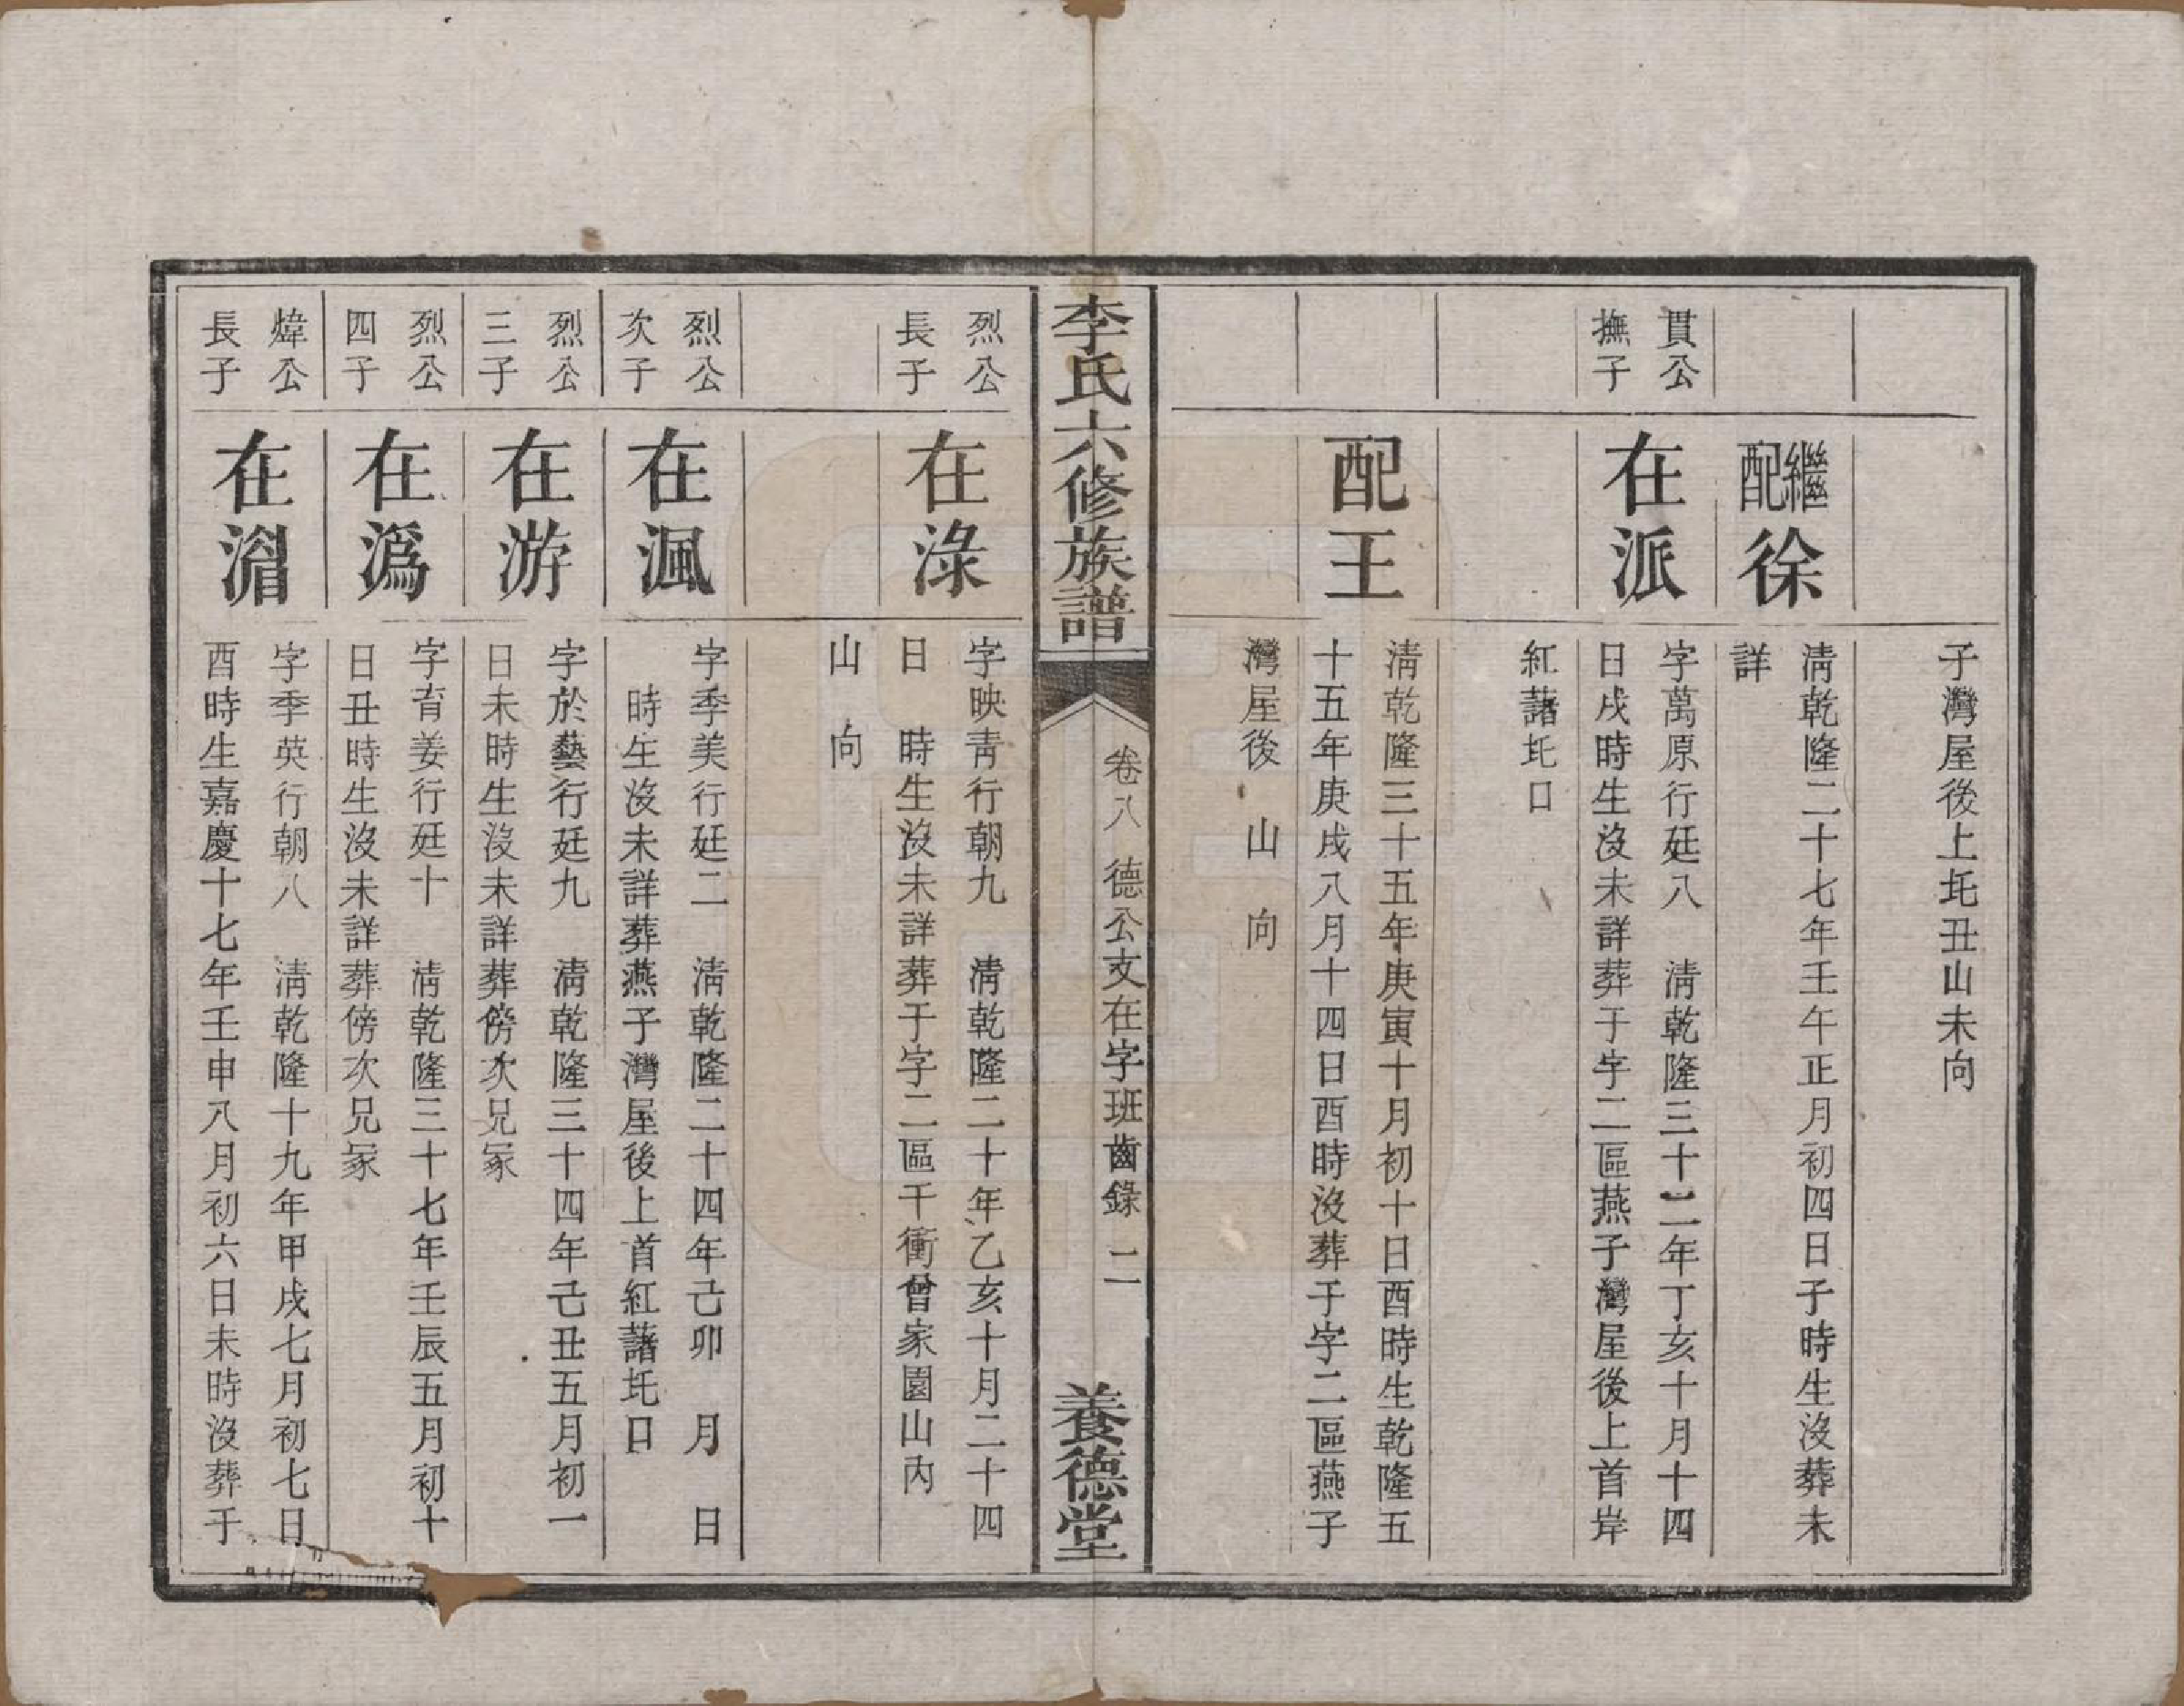 子灣屋後上坉丑山未向
繼配徐
清乾隆二十七年壬午正月初四日子時生沒葬未
詳
貫公
撫子
在派
字萬原行廷八　清乾隆三十二年丁亥十月十四
日戌時生沒未詳葬于字二區燕子灣屋後上首岸
紅藷坉口
配王
清乾隆三十五年庚寅十月初十日酉時生乾隆五
十五年庚戌八月十四日酉時沒葬于字二區燕子
灣屋後　山　向
李氏六修族譜
卷八　德公支在字班齒錄　二
養德堂
烈公
長子
在淥
字映青行朝九　清乾隆二十年乙亥十月二十四
日　時生沒未詳葬于字二區干衝曾家園山內
山　向
烈公
次子
在渢
字季美行廷二　清乾隆二十四年己卯　月　日
時生沒未詳葬燕子灣屋後上首紅藷坉口
烈公
三子
在游
字於藝行廷九　清乾隆三十四年己丑五月初一
日未時生沒未詳葬傍次兄冢
烈公
四子
在潙
字育姜行廷十　清乾隆三十七年壬辰五月初十
日丑時生沒未詳葬傍次兄冢
煒公
長子
在湽
字季英行朝八　清乾隆十九年甲戌七月初七日
酉時生嘉慶十七年壬申八月初六日未時沒葬于